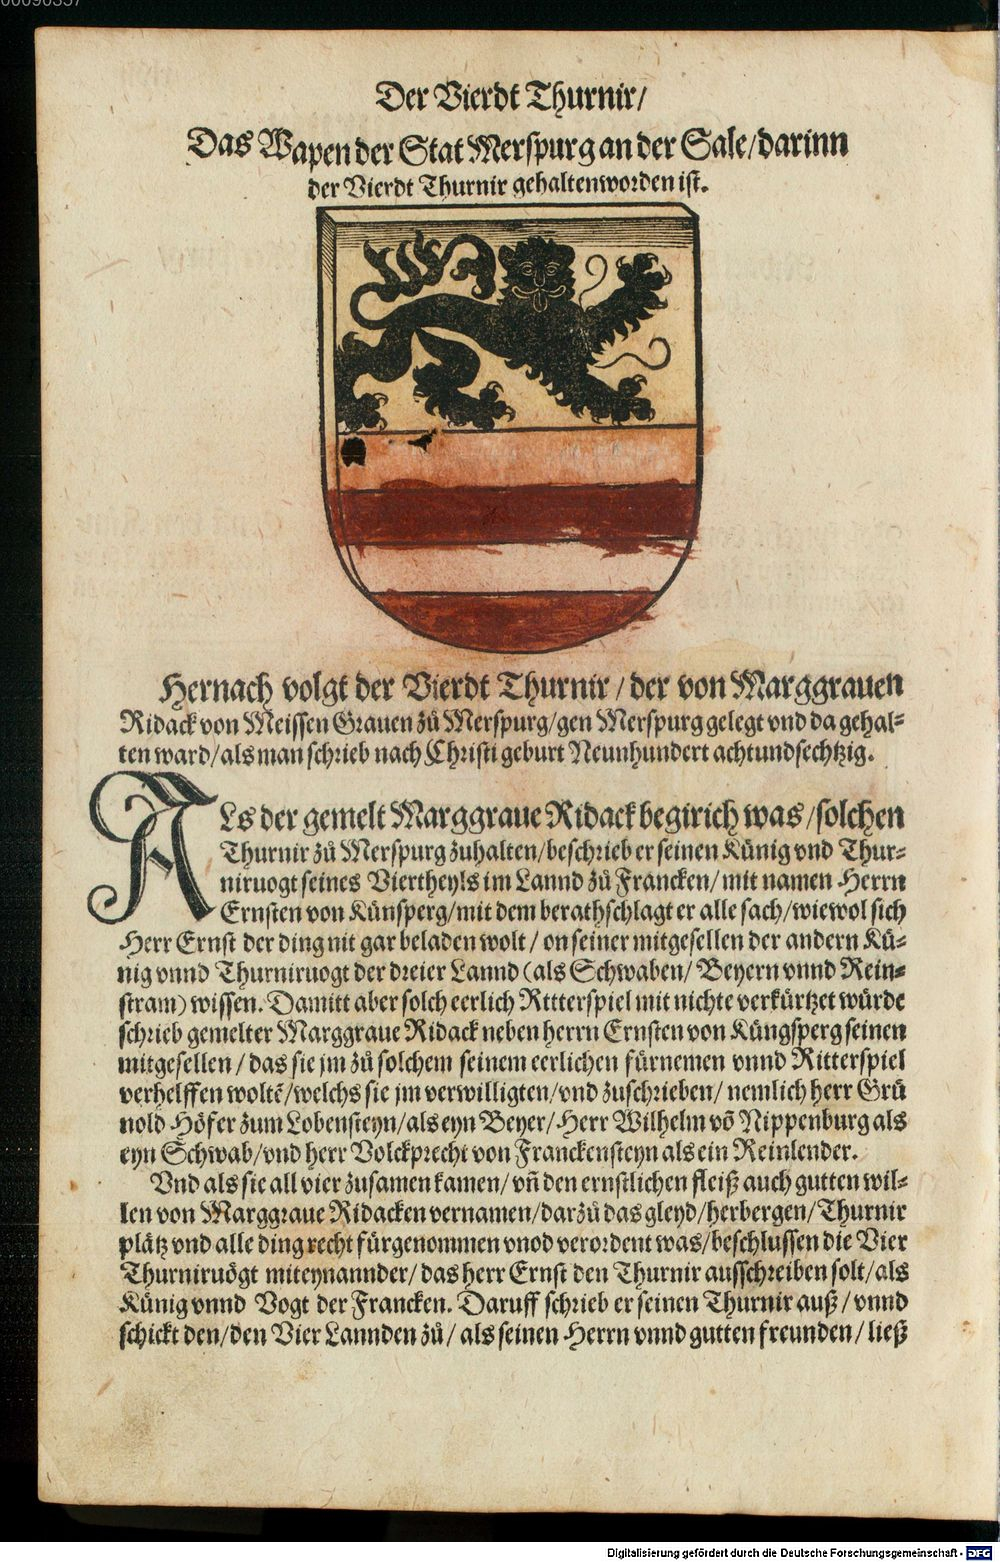 Der Vierdt Thurnir/
Das Wapen der Stat Merspurg an der Sale/darinn
der Vierdt Thurnir gehalten worden ist.
Hernach volgt der Vierdt Thurnir/der von Marggrauen
Ridack von Meissen Grauen zů Merspurg/gen Merspurg gelegt vnd da gehal-
ten ward/als man schrieb nach Christi geburt Neunhundert achtundsechtzig.
ALs der gemelt Marggraue Ridack begirich was/solchen
Thurnir zů Merspurg zuhalten/beschrieb er seinen Künig vnd Thur-
niruogt seines Viertheyls im Lannd zů Francken/mit namen Herrn
Ernsten von Künsperg/mit dem berathschlagt er alle sach/wiewol sich
Herr Ernst der ding nit gar beladen wolt/on seiner mitgesellen der andern Kü-
nig vnnd Thurniruogt der dreier Lannd (als Schwaben/Beyern vnnd Rein-
stram) wissen. Damitt aber solch eerlich Rttterspiel mit nichte verkürtzet würde
schrieb gemelter Marggraue Ridack neben herrn Ernsten von Küngsperg seinen
mitgesellen/das sie jm zů solchem seinem eerlichen fürnemen vnnd Ritterspiel
verhelffen woltē/welchs sie jm verwilligten/vnd zuschrieben/nemlich herr Grü
nold Höfer zum Lobensteyn/als eyn Beyer/Herr Wilhelm võ Nippenburg als
eyn Schwab/vnd herr Volckprecht von Franckensteyn als ein Reinlender.
Vnd als sie all vier zusamen kamen/vñ den ernstlichen fleiß auch gutten wil-
len von Marggraue Ridacken vernamen/darzů das gleyd/herbergen/Thurnir
plätz vnd alle ding recht fürgenommen vnod verordent was/beschlussen die Vier
Thurniruögt miteynannder/das herr Ernst den Thurnir ausschreiben solt/als
Künig vnnd Vogt der Francken. Daruff schrieb er seinen Thurnir auß/vnnd
schickt den/den Vier Lannden zů/als seinen Herrn vnnd gutten freunden/ließ
Digitalisierung gefördert durch die Deutsche Forschungsgemeinschaft - DFG